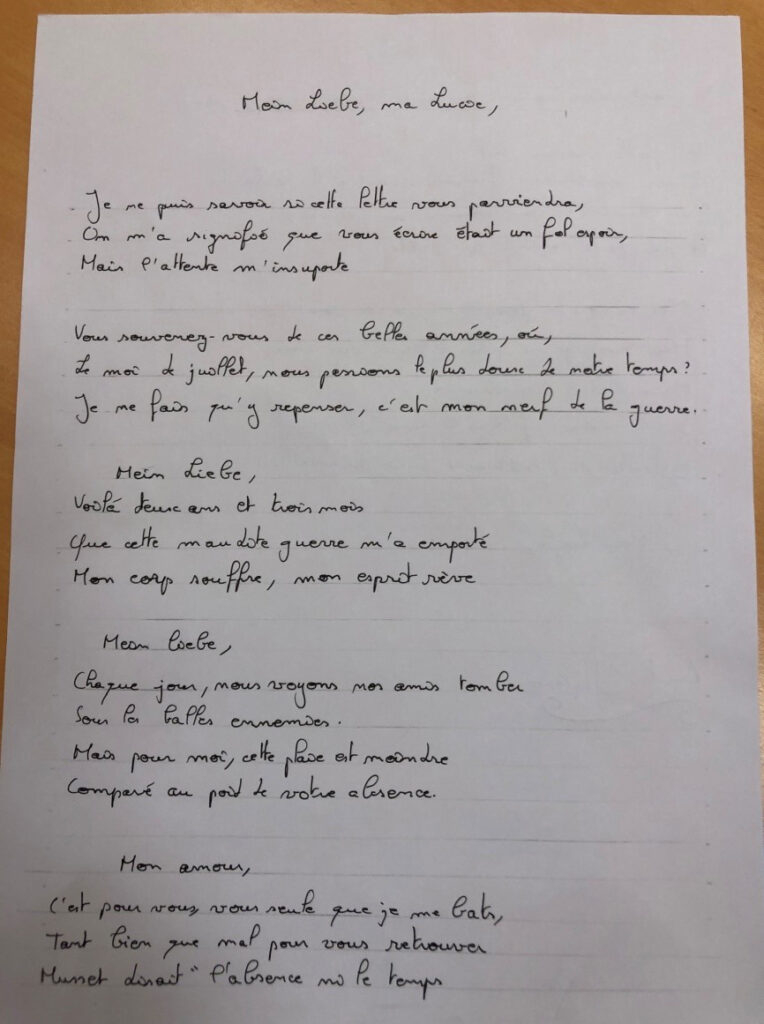 Mein Liebe, ma Lucie,
Je ne puis savoir si cette lettre vous parviendra,
On m'a signifié que vous écrire était un fol espoir,
Mais l'attente m'insuporte
Vous souvenez-vous de ces belles années, où,
Le moi de juillet, nous passions le plus doux de notre temps?
Je ne fais qu'y repenser, c'est mon nerf de la guerre.
Mein Liebe,
Voilà deux ans et trois mois
Que cette maudite guerre m'a emporté
Mon corp souffre, mon esprit rêve
Mein liebe,
Chaque jour, nous voyons nos amis tomber
Sous les balles ennemies.
Mais pour moi, cette plaie est moindre
Comparé au poid de votre absence.
Mon amour,
C'est pour vous, vous seule que je me bats,
Tant bien que mal pour vous retrouver
Musset disait " l'absence ni le temps